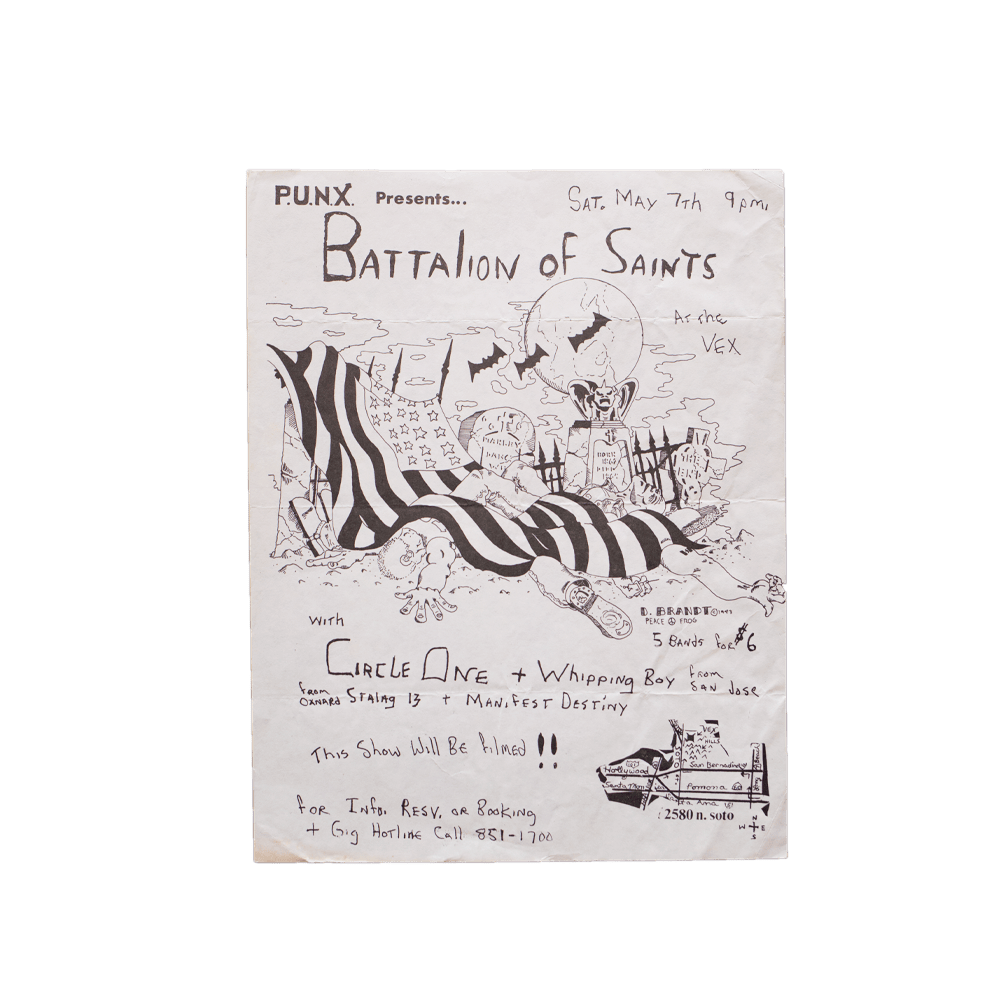 P.U.N.X. Presents...
SAT. MAY 7TH 9pm.
BATTALION OF SAINTS
AT the
VEX
D. BRANDT ©1983
PEACE FROG
5 BANDS for $6
with
CIRCLE ONE + WHIPPING BOY from SAN JOSE
from OXNARD STALAG 13 + MANIFEST DESTINY
THIS SHOW WILL BE filmed!!
VEX
HILLS
SOTO
Hollywood
San Bernardino
Santa Mon
Pomona
ta Ana
: 2580 n. soto
N
W E
S
for INFO. RESV. OR BOOKING
+ Gig HOTLINE Call 851-1700